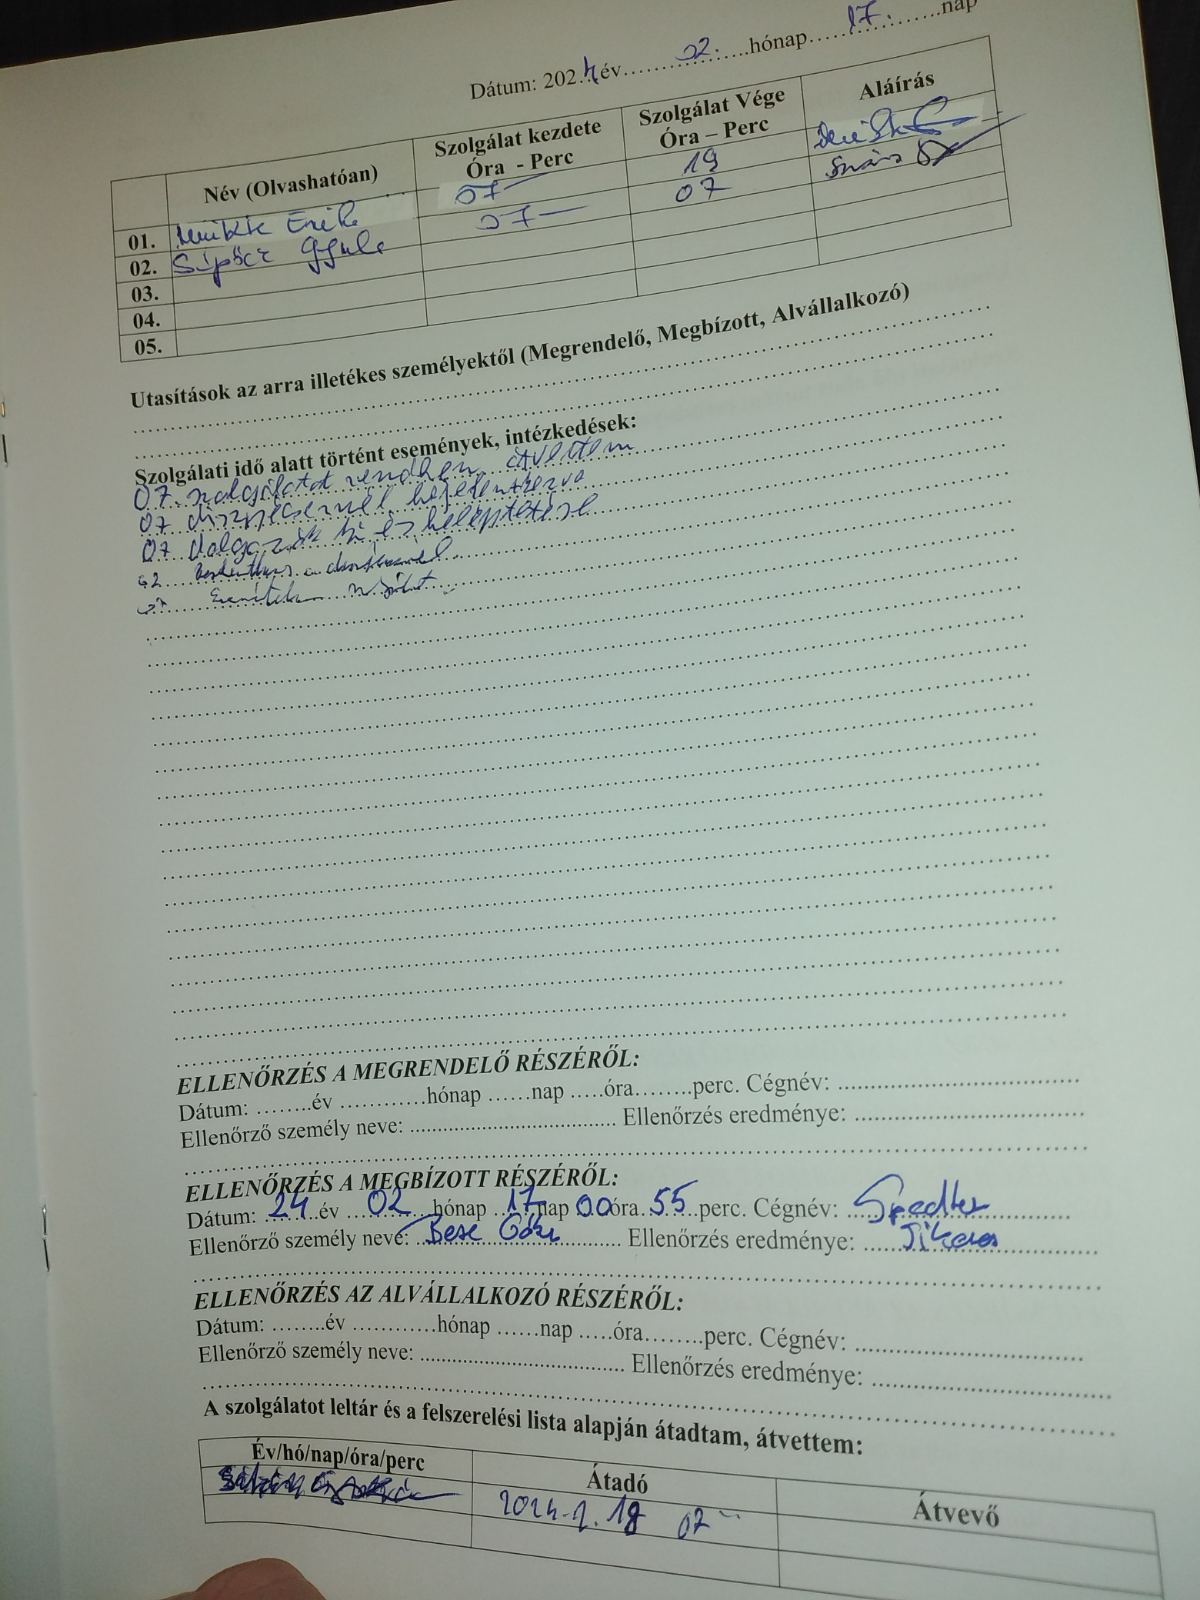 Dátum: 2024 év 02. hónap 17. nap
Név (Olvashatóan) Szolgálat kezdete Óra - Perc Szolgálat Vége Óra – Perc Aláírás
01. 07 19
02. Gyula 07 07
03.
04.
05.
Utasítások az arra illetékes személyektől (Megrendelő, Megbízott, Alvállalkozó)
Szolgálati idő alatt történt események, intézkedések:
07 szolgálatot rendben átvettem
07 bejelentkezve
07 dolgozók ki és beléptetése
ELLENŐRZÉS A MEGRENDELŐ RÉSZÉRŐL:
Dátum: ........év ............hónap ......nap .....óra........perc. Cégnév:
Ellenőrző személy neve: Ellenőrzés eredménye:
ELLENŐRZÉS A MEGBÍZOTT RÉSZÉRŐL:
Dátum: 24 év 02 hónap 17 nap 00 óra 55 perc. Cégnév:
Ellenőrző személy neve: Bese Ellenőrzés eredménye:
ELLENŐRZÉS AZ ALVÁLLALKOZÓ RÉSZÉRŐL:
Dátum: .......év ............hónap ......nap .....óra........perc. Cégnév:
Ellenőrző személy neve: Ellenőrzés eredménye:
A szolgálatot leltár és a felszerelési lista alapján átadtam, átvettem:
Év/hó/nap/óra/perc Átadó Átvevő
2024. 2. 18 07